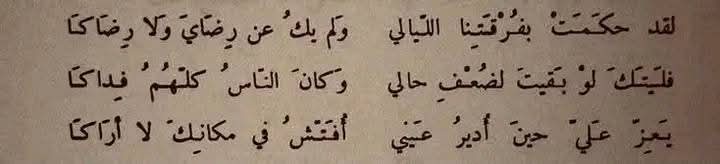 لقد حكَمَتْ بفُرْقَتِنا اللّيالي ولَم يكُ عن رِضَايَ وَلا رِضَاكَا
فلَيتكَ لوْ بَقيتَ لضُعْفِ حالي وَكانَ النّاسُ كلّهُمُ فِداكَا
يَعِزّ عَليّ حينَ أديرُ عَيني أُفَتّشُ في مكانِكَ لا أرَاكَا